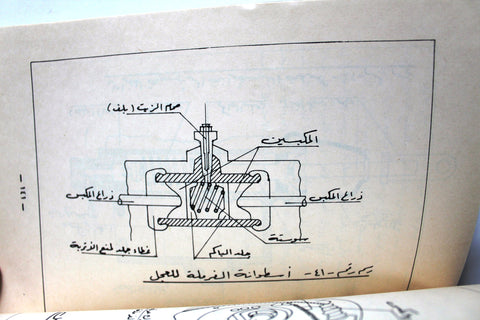 صمام الزيت (بلف)
المكبسين
ذراع المكبس
ذراع المكبس
غطاء جلد لمنع الأتربة
جلد الباكم
سوستة
رسم رقم -٤١- أسطوانة الفرملة للعجل
- ١٤١ -